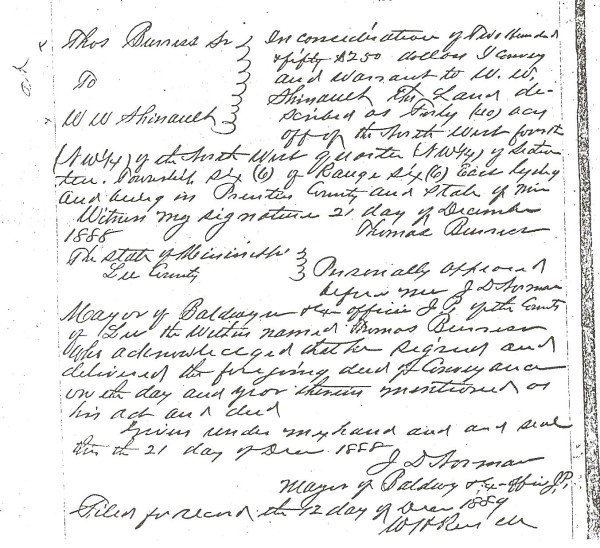 Thos Burress Sr
To
W W Shinault
In consideration of Two Hundred
& fifty $250 dollars I convey
and warrant to W. W.
Shinault the Land de-
scribed as Forty (40) acres
off of the North West fourth
(NW¼) of the North West quarter (NW¼) of Section
ten. Township six (6) of Range six (6) East lying
and being in Prentiss County and State of Miss
Witness my signature 21 day of December
1888 Thomas Burress
The State of Mississippi
Lee County
Personally appeared
before me J D Norman
Mayor of Baldwyn & ex officio J.P. of the County
of Lee the within named Thomas Burress
who acknowledged that he signed and
delivered the foregoing deed of Conveyance
on the day and year therein mentioned as
his act and deed
Given under my hand and and seal
this the 21 day of Decr 1888
J D Norman
Mayor of Baldwyn & ex-officio J.P.
Filed for record the 12 day of Decr 1889